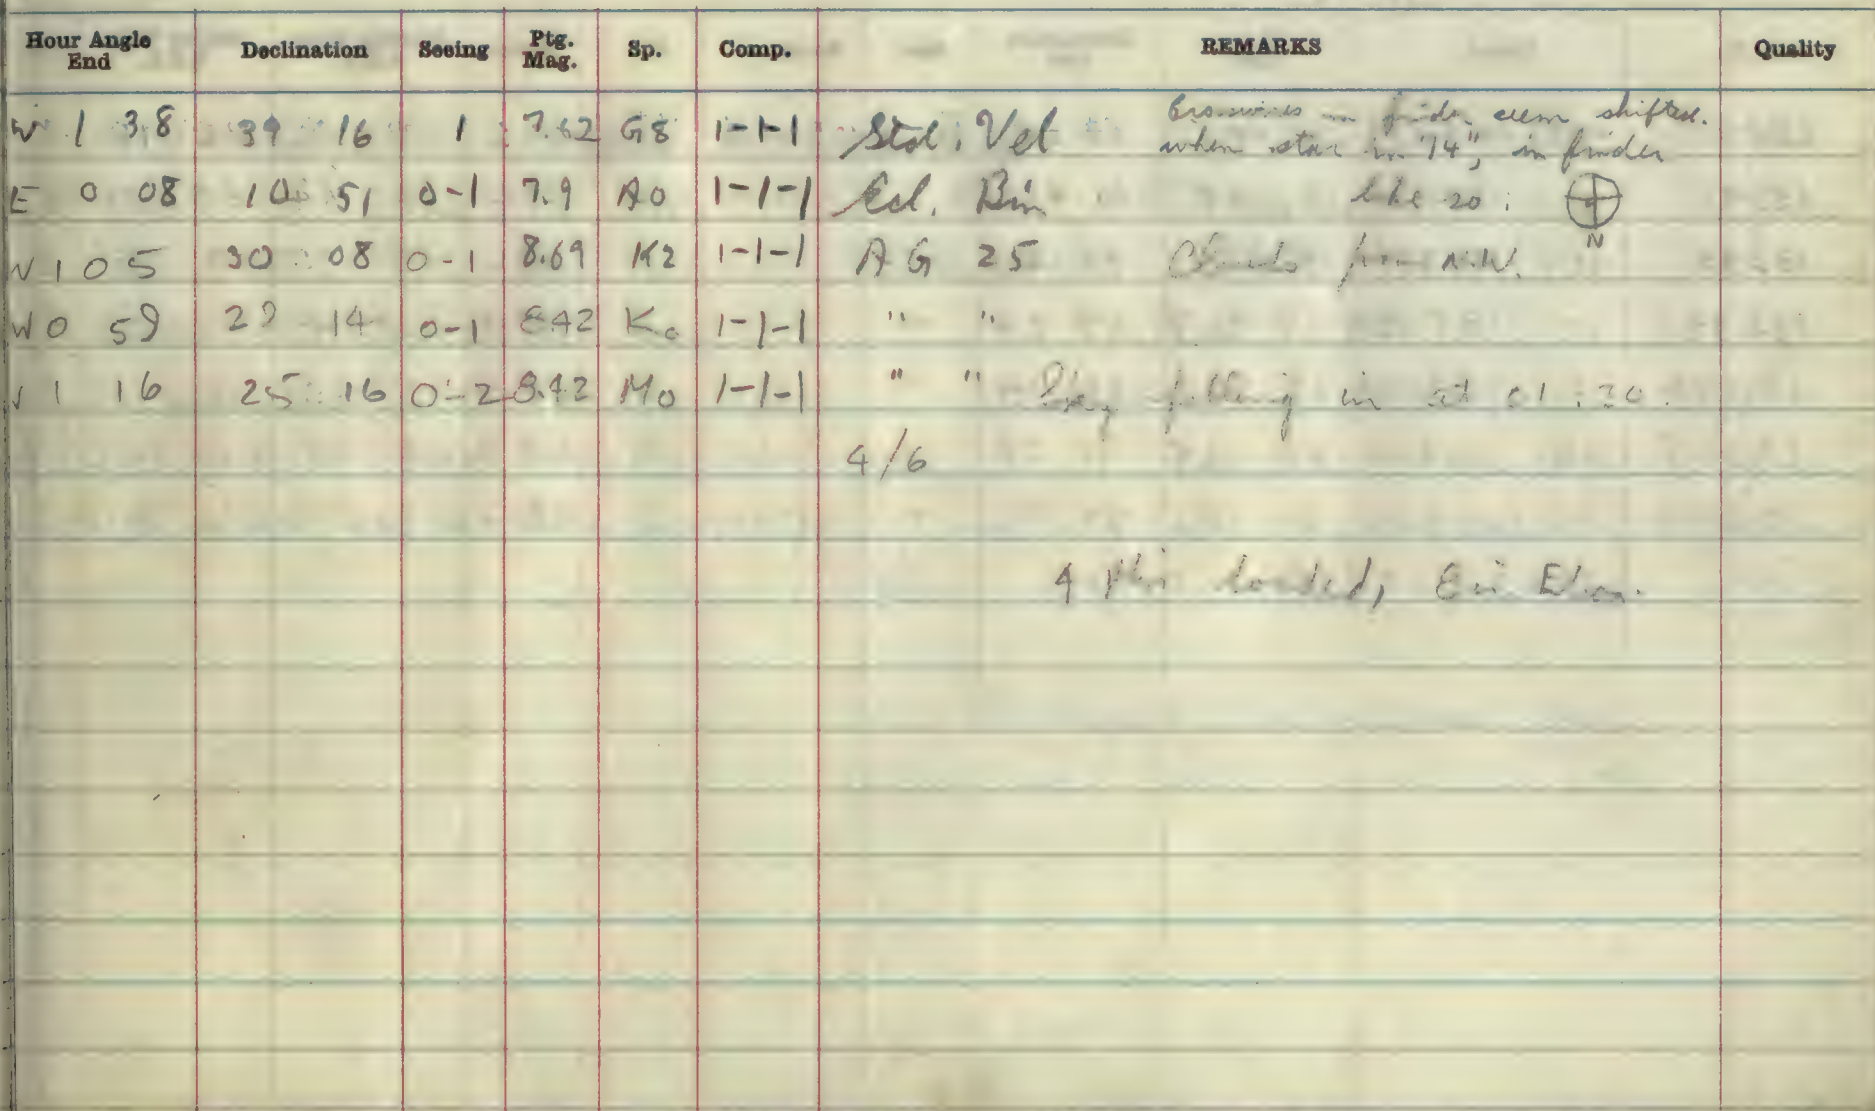 Hour Angle End Declination Seeing Ptg. Mag. Sp. Comp. REMARKS Quality
W 1 38 39 16 1 7.62 G8 1-1-1 Std. Vel in finder seem shifted.
when star in 74", in finder
E 0 08 10 51 0-1 7.9 A0 1-1-1 Ecl. Bin like so:
N
W 1 05 30 08 0-1 8.69 K2 1-1-1 AG 25 Clouds from N.W.
W 0 59 29 14 0-1 8.42 K0 1-1-1 " "
1 16 25 16 0-2 8.42 M0 1-1-1 " " in at 01:30.
4/6
4 loaded,